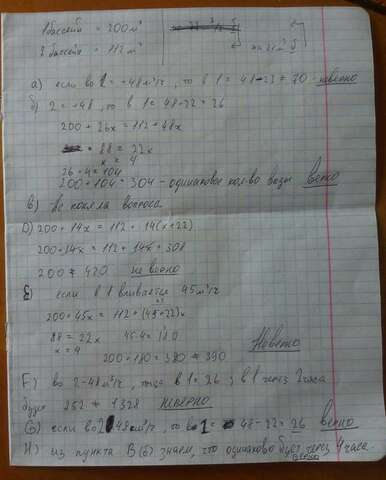 1 бассейн = 200 м³
2 бассейн = 112 м³
на 22 м³ б
а) если во 2 = 48 м³/ч, то в 1 = 48 - 22 ≠ 70 - неверно
б) 2 = 48, то в 1 = 48-22 = 26
200 + 26x = 112 + 48x
88 = 22x
x = 4
26 · 4 = 104
200 + 104 = 304 - одинаковое кол-во воды верно
в) Не поняла вопроса
D) 200 + 14x = 112 + 14(x+22)
200 + 14x = 112 + 14x + 308
200 ≠ 420 не верно
если в 1 вливается 45 м³/ч
200 + 45x = 112 + (45+22)x
88 = 22x 45·4 = 180
x = 4
200 + 180 = 380 ≠ 390 Неверно
F) во 2 - 48 м³/ч, тогда в 1 = 26 ; в 1 через 2 часа
будет 252 ≠ 1328 неверно
G) если во 2 48 м³/ч, то во 1 = 48 - 22 = 26 верно
H) из пункта B(б) знаем, что одинаково будет через 4 часа.
верно